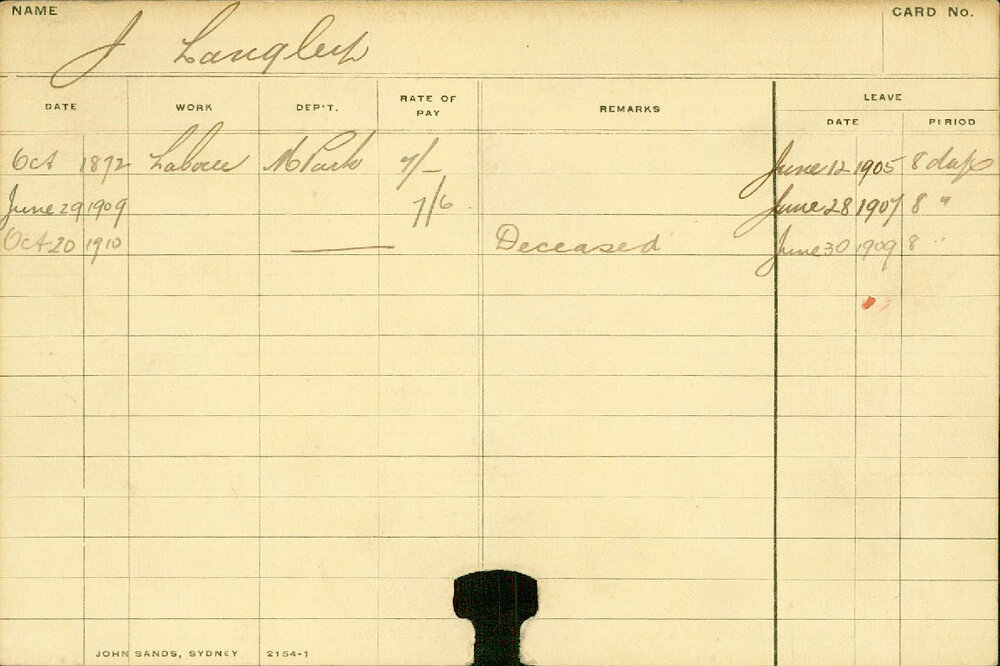 NAME J Langley CARD No.
LEAVE
DATE WORK DEP'T. RATE OF PAY REMARKS DATE PERIOD
Oct 1872 Labour M Park 7/- June 12 1905 8 days
June 29 1909 7/6 June 28 1907 8 "
Oct 20 1910 Deceased June 30 1909 8 "
JOHN SANDS, SYDNEY 2154-1